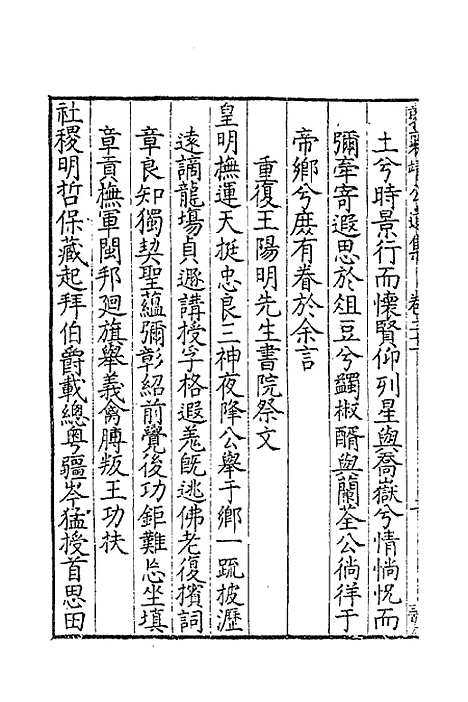 土兮時景行而懷賢仰列星與喬嶽兮情惝怳而
彌牽寄遐思於俎豆兮蠲椒醑與蘭荃公徜徉于
帝鄉兮庶有眷於余言
重復王陽明先生書院祭文
皇明撫運天挺忠良三神夜降公舉于鄉一疏披瀝
遠謫龍塲貞遯講授孚格遐羗旣逃佛老復擯詞
章良知獨契聖蘊彌彰紹前覺後功鉅難忘坐填
章貢撫軍閩邦廻旗舉義禽膊叛王功扶
社稷明哲保藏起拜伯爵載總粵疆岑猛授首思田